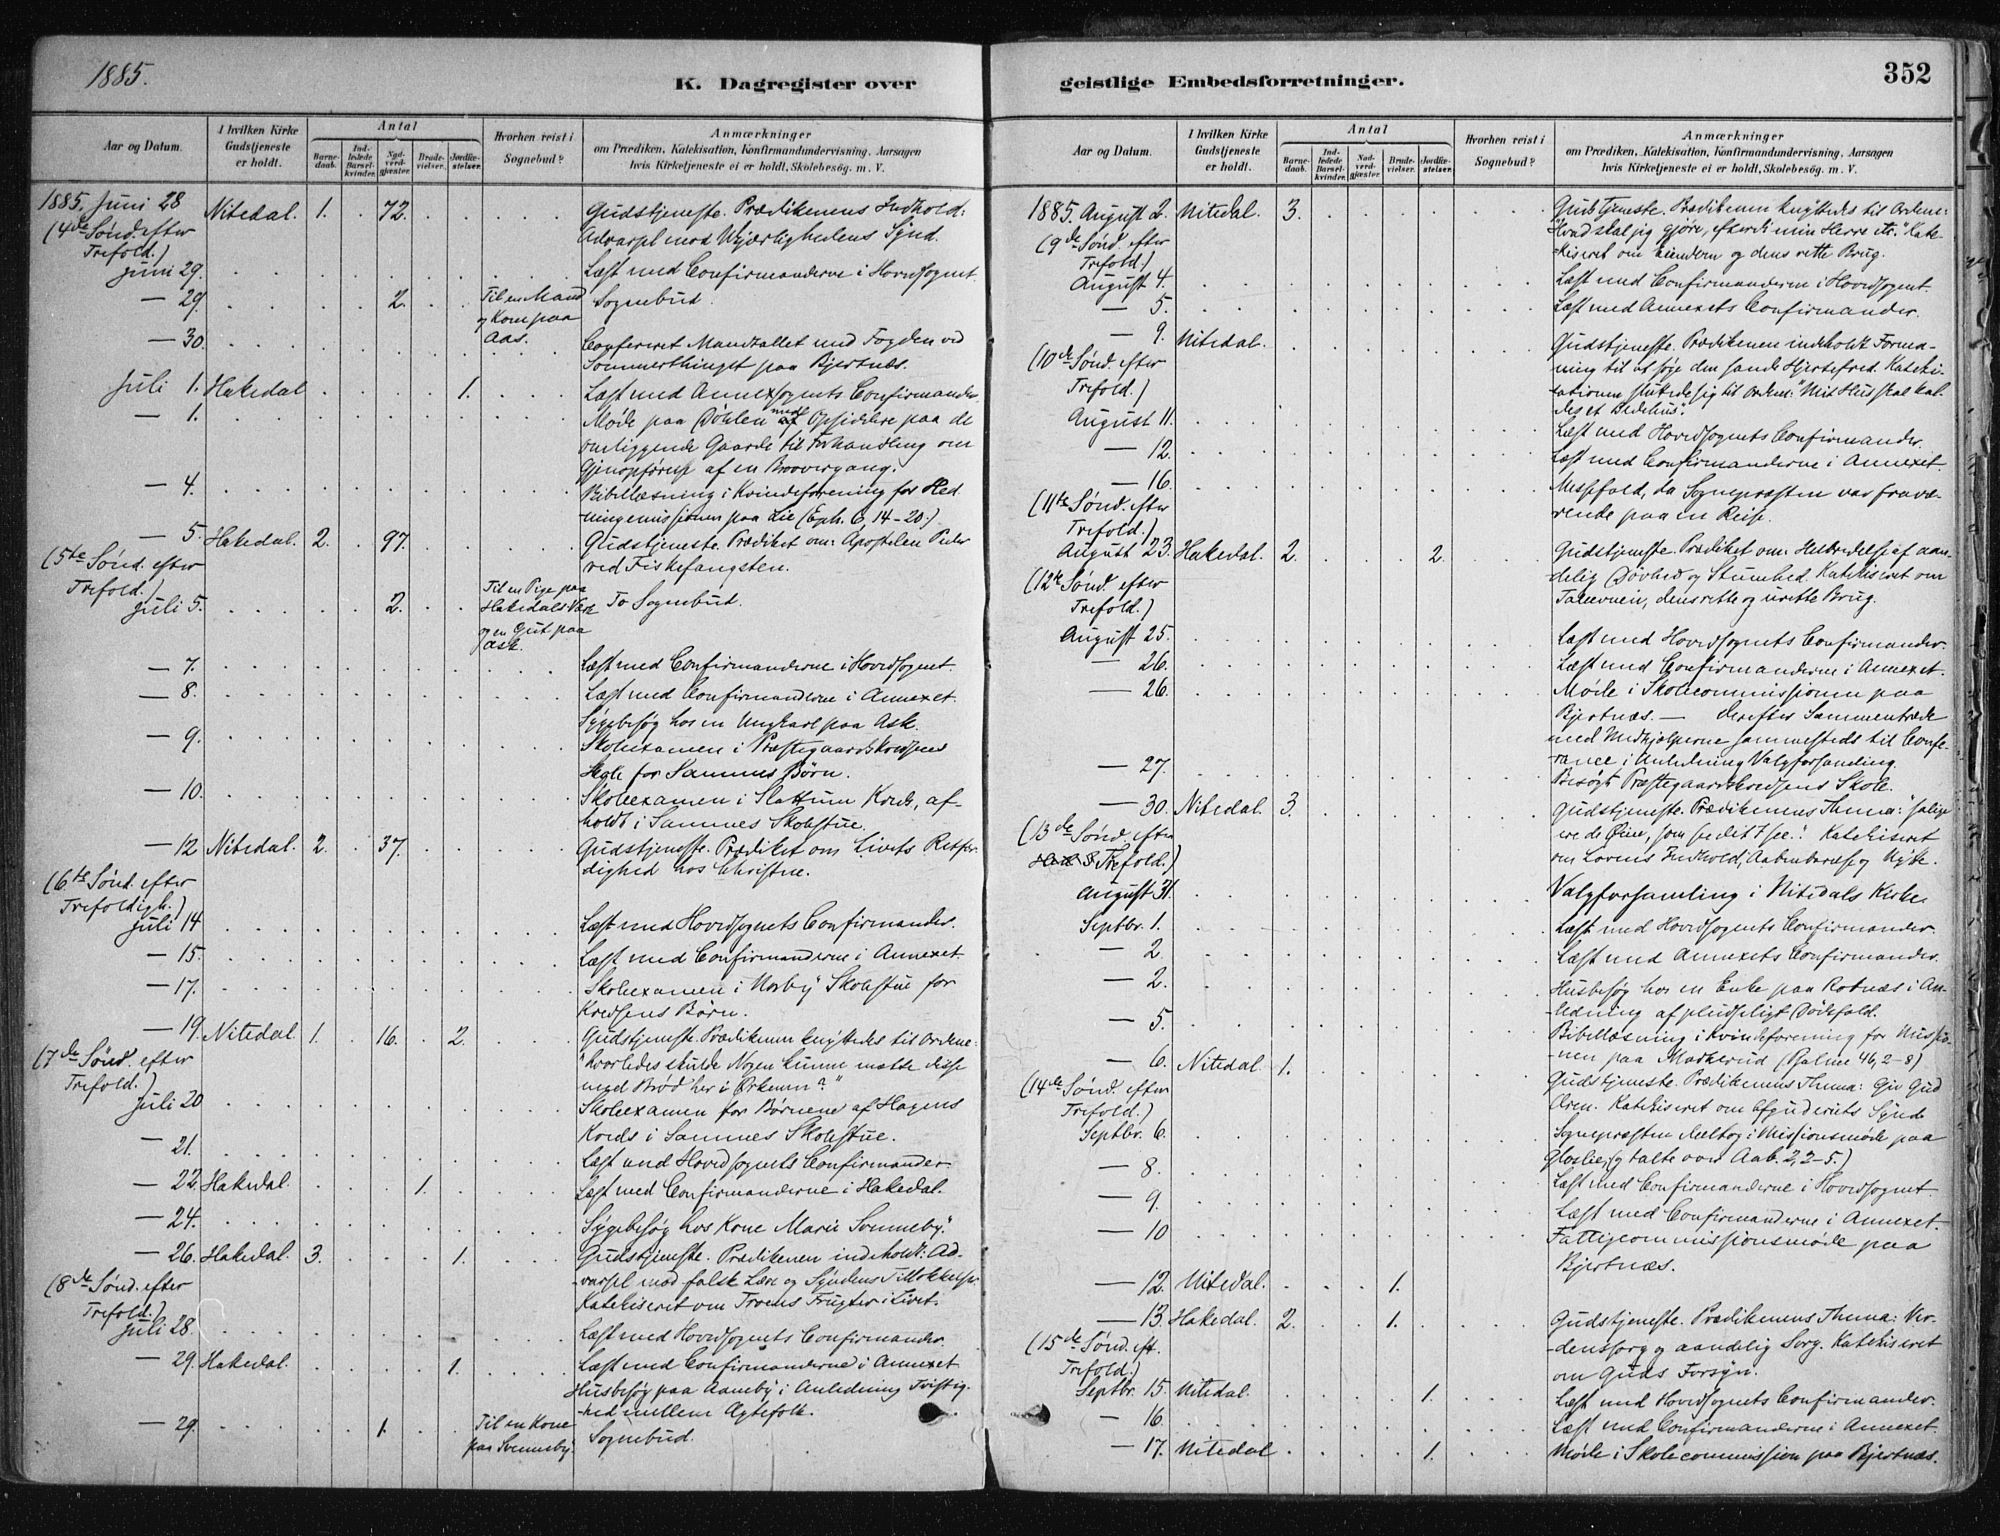 1885.
K. Dagregister over
Aar og Datum.
I hvilken Kirke
Gudstjeneste
er holdt.
Antal
Barne-
daab.
Ind-
ledede
Barsel-
kvinder.
Nad-
verd-
gjæster.
Brude-
vielser.
Jordfæ-
stelser.
Hvorhen reist i
Sognebud?
Anmærkninger
om Prædiken, Katekisation, Konfirmandundervisning, Aarsagen
hvis Kirketjeneste ei er holdt, Skolebesøg. m. V.
1885. Juni 28 Nitedal. 1. 72. Gudstjeneste. Prædikenens Indhold:
(4de Sønd. efter Advarsel mod Ukjærlighedens Synd.
Trefold.)
Juni 29. Læst med Confirmanderne i Hovedsognet.
— 29. 2. Til en Mand Sognebud.
og Kone paa
Aas.
— 30. Confereret Mandtallet med Fogden ved
Sommerthinget paa Bjertnæs.
Juli 1. Hakedal 1. Læst med Annexsognets Confirmander.
— 1. Møde paa Døhlen med Opsiddere paa de
omliggende Gaarde til Forhandling om
Gjenopførsel af en Broovergang.
— 4. Bibellæsning i Kvindeforening for Hed-
ningemissionen paa Lie (Eph. 6, 14-20.)
— 5. Hakedal. 2. 97. Gudstjeneste. Prædiket om: Apostelen Peder
(5te Sønd. efter ved Fiskefangsten.
Trefold.)
Juli 5. 2. Til en Pige paa To Sognebud.
Hakedals Værk
og en Gut paa
Ask.
— 7. Læst med Confirmanderne i Hovedsognet.
— 8. Læst med Confirmanderne i Annexet.
Sygebesøg hos en Ungkarl paa Ask.
— 9. Skoleexamen i Præstegaardskredsens
Skole for Sammes Børn.
— 10. Skoleexamen i Slattum Kreds, af-
holdt i Sammes Skolestue.
— 12 Nitedal. 2. 37. Gudstjeneste. Prædiket om Livets Retfær-
(6te Sønd. efter dighed hos Christne.
Trefoldigh.)
Juli 14 Læst med Hovedsognets Confirmander.
— 15. Læst med Confirmanderne i Annexet
— 17. Skoleexamen i Norby Skolestue for
Kredsens Børn.
— 19. Nitedal. 1. 16. 2. Gudstjeneste. Prædikenen knyttedes til Ordene:
(7de Sønd. efter "hvorledes skulde Nogen kunne mætte disse
Trefold.) med Brød her i Ørkenen?"
Juli 20 Skoleexamen for Børnene af Hagens
Kreds i Sammes Skolestue.
— 21. Læst med Hovedsognets Confirmander.
— 22. Hakedal. 1. Læst med Confirmanderne i Hakedal.
— 24. Sygebesøg hos Kone Marie Sonneby.
— 26. Hakedal. 3. 1. Gudstjeneste. Prædikenen indeholdt: Ad-
(8de Sønd. efter varsel mod falsk Lære og Syndens Tillokkelse.
Trefold.) Katekiseret om Troens Frugter i Livet.
Juli 28. Læst med Hovedsognets Confirmander.
— 29. Hakedal. 1. Læst med Confirmanderne i Annexet
Husbesøg paa Aaneby i Anledning Tvistig-
hed mellem Ægtefolk.
— 29. 1. Til en Kone Sognebud.
paa Sonneby.
geistlige Embedsforretninger.
352
Aar og Datum.
I hvilken Kirke
Gudstjeneste
er holdt.
Antal
Barne-
daab.
Ind-
ledede
Barsel-
kvinder.
Nad-
verd-
gjæster.
Brude-
vielser.
Jordfæ-
stelser.
Hvorhen reist i
Sognebud?
Anmærkninger
om Prædiken, Katekisation, Konfirmandundervisning, Aarsagen
hvis Kirketjeneste ei er holdt, Skolebesøg. m. V.
1885. August 2. Nitedal. 3. Gudstjeneste. Prædikenen knyttedes til Ordene:
(9de Sønd. efter "Hvad skal jeg gjøre, efterdi min Herre etc." Kate-
Trefold.) kiseret om Eiendom og dens rette Brug.
August 4. Læst med Confirmanderne i Hovedsognet.
— 5. Læst med Annexets Confirmander.
— 9. Nitedal. Gudstjeneste. Prædikenen indeholdt Forma-
(10de Sønd. efter ning til at søge den sande Hjertefred. Kateki-
Trefold.) sationen sluttede sig til Ordene: "Mit Hus skal kal-
des et Bedehus".
August 11. Læst med Hovedsognets Confirmander.
— 12. Læst med Confirmanderne i Annexet.
— 16. Messefald, da Sognepræsten var fravæ-
(11te Sønd. efter rende paa en Reise.
Trefold.)
August 23. Hakedal. 2. 2. Gudstjeneste. Prædiket om: Helbredelse af aan-
(12te Sønd. efter delig Døvhed og Stumhed. Katekiseret om
Trefold.) Taleevnen, dens rette og urette Brug.
August 25. Læst med Hovedsognets Confirmander.
— 26. Læst med Confirmanderne i Annexet.
— 26. Møde i Skolecommissionen paa
Bjertnæs. — derefter Sammentræde
med Medhjælperne sammesteds til Confe-
rance i Anledning Valgforsamling.
— 27. Besøgt Præstegaardskredsens Skole.
— 30. Nitedal. 3. Gudstjeneste. Prædikenens Thema: "salige
(13de Sønd. efter ere de Øine, som se det I see." Katekiseret
Trefold.) om Lovens Indhold, Aabenbarelse og Nytte.
August 31. Valgforsamling i Nitedals Kirke.
Septbr. 1. Læst med Hovedsognets Confirmander.
— 2. Læst med Annexets Confirmander.
— 2. Husbesøg hos en Enke paa Rotnæs i An-
ledning af pludseligt Dødsfald.
— 5. Bibellæsning i Kvindeforening for Missio-
nen paa Markerud (Psalme 46, 2-8)
— 6. Nitedal. 1. Gudstjeneste. Prædikenens Thema: Giv Gud
(14de Sønd. efter Æren. Katekiseret om Afguderiets Synd.
Trefold.)
Septbr. 6. Sognepræsten deeltog i Missionsmøde paa
og talte over Aab. 2, 2-5.)
— 8. Læst med Confirmanderne i Hovedsognet.
— 9. Læst med Confirmanderne i Annexet.
— 10 Fattigcommissionsmøde paa
Bjertnæs.
— 12. Nitedal. 1.
— 13. Hakedal. 2. 1. Gudstjeneste. Prædikenens Thema: Ver-
(15de Sønd. eft. denssorg og aandelig Sorg. Katekiseret
Trefold.) om Guds Forsyn.
Septbr. 15. Nitedal. 1. Læst med Hovedsognets Confirmander.
— 16. Læst med Confirmanderne i Annexet.
— 17. Nitedal 1. Møde i Skolecommission paa Bjertnæs.